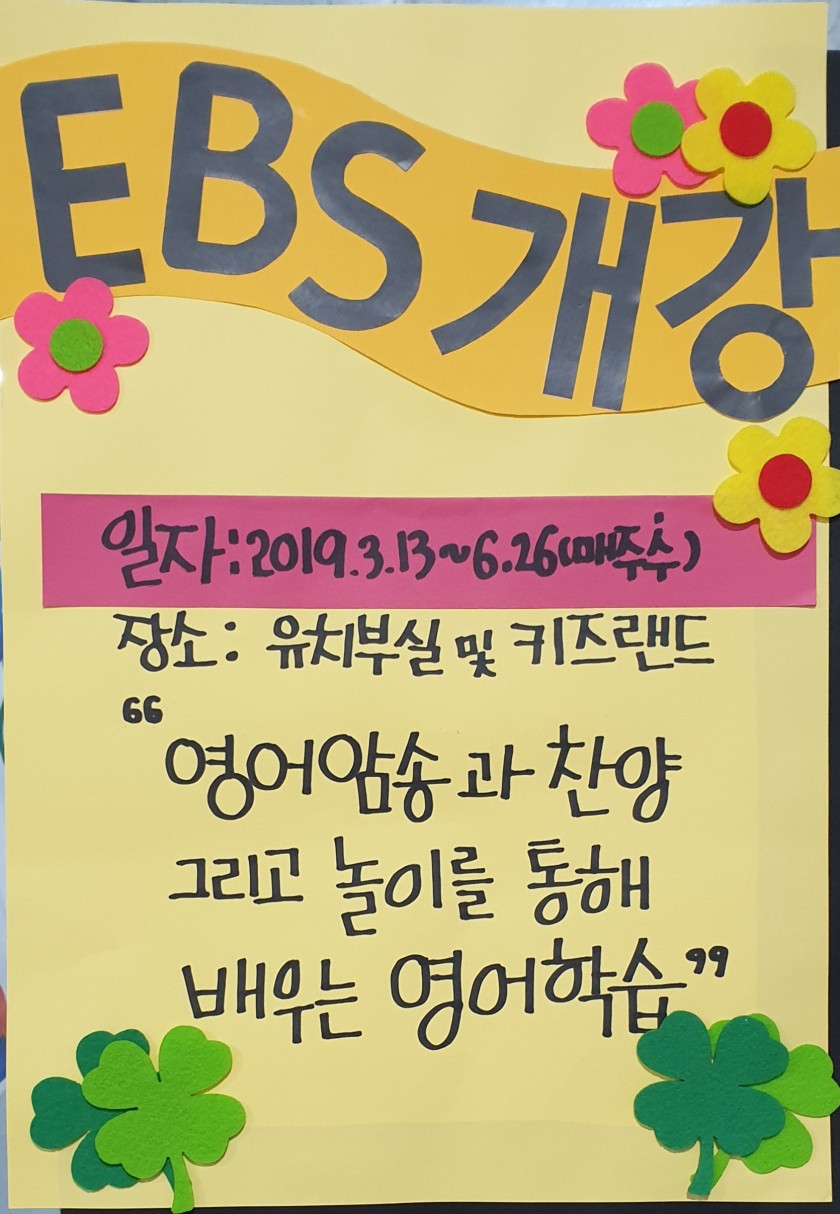 EBS 개강
일자:2019.3.13~6.26(매주수)
장소: 유치부실 및 키즈랜드
“영어암송과 찬양
그리고 놀이를 통해
배우는 영어학습”